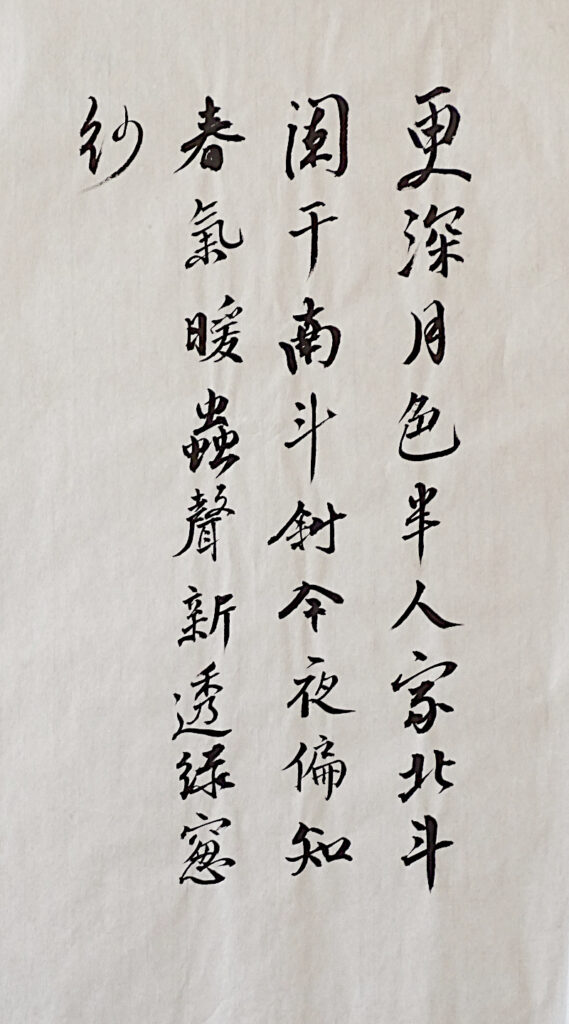 更深月色半人家北斗
闌干南斗斜今夜偏知
春氣暖蟲聲新透綠窗
紗